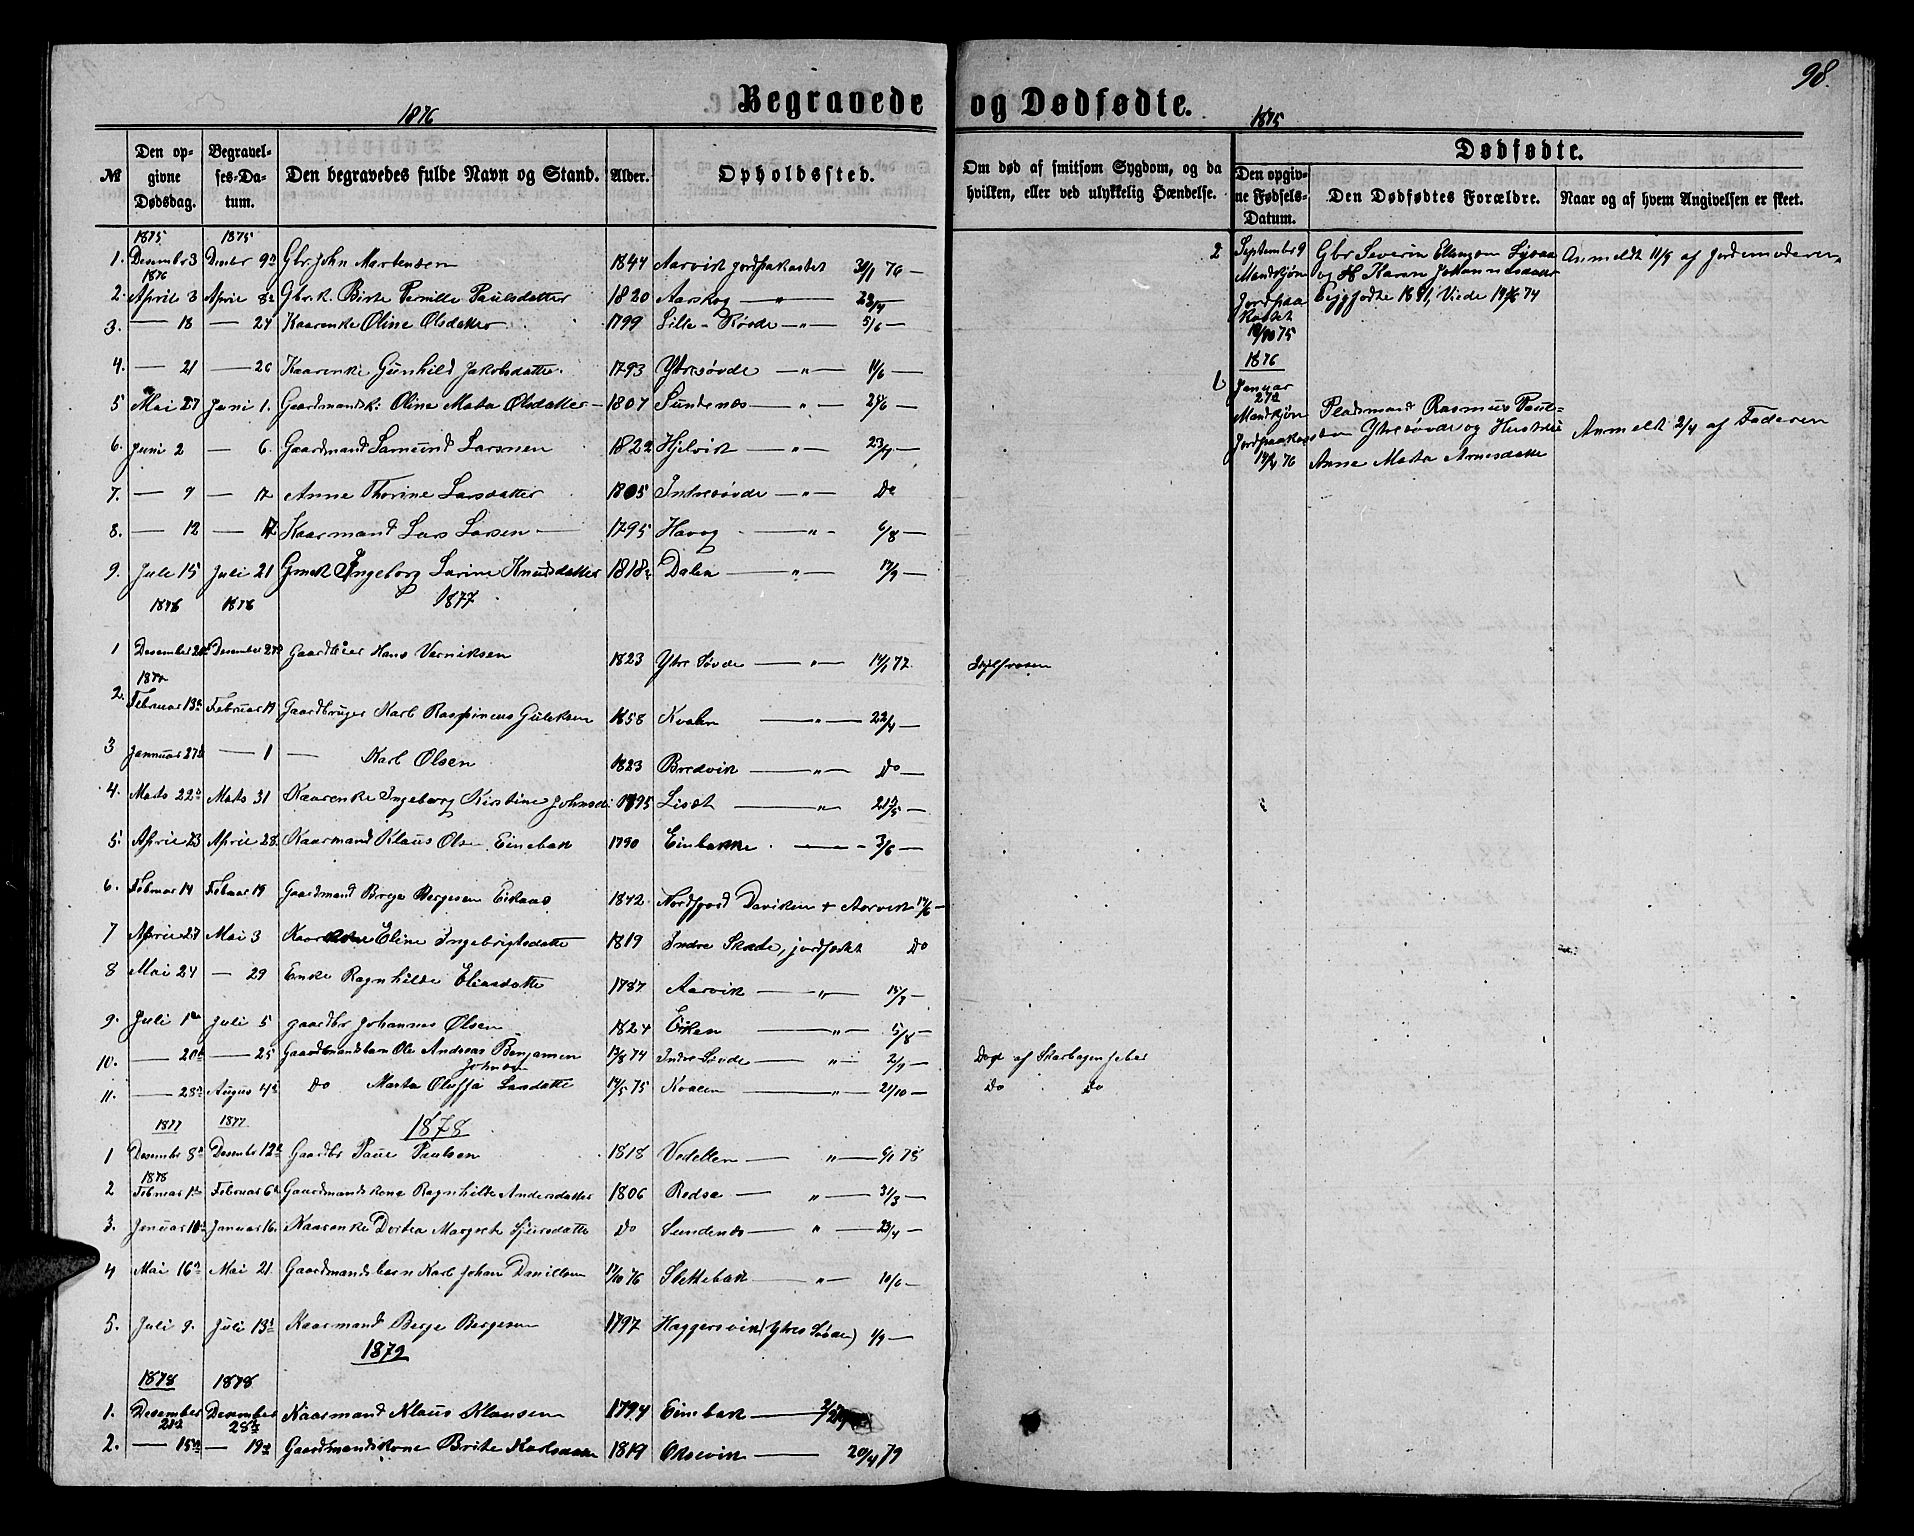 98.
Begravede og Dødfødte.
1876
1875
№
Den opgivne Dødsdag.
Begravelses-Datum.
Den begravedes fulde Navn og Stand.
Alder.
Opholdssted.
Om død af smitsom Sygdom, og da hvilken, eller ved ulykkelig Hændelse.
Dødfødte.
Den opgivne Fødsels-Datum.
Den Dødfødtes Forældre.
Naar og af hvem Angivelsen er skeet.
1875 1875
1. Desembr 3 Desbr 9 Gbr. John Martensen 1844 Aarvik jordpakastet 30/1 76 —
1876
2. April 3 April 8 Gbr.k. Birte Pernille Paulsdatter 1820 Aarskog — " — 23/4 —
3. — 18 — 24 Kaarenke Oline Olsdatter 1799 Lille-Søvde — " — 5/6 —
4. — 21 — 26 Kaarenke Gunhild Jakobsdatter 1793 Ytresøvde — " — 11/6 —
5 Mai 27 Juni 1. Gaardmandsk. Oline Marta Olsdatter 1807 Sundenæs — " — 25/6 —
6. Juni 2 — 6. Gaardmand Samund Larsen 1822 Hjelvik — " — 23/7 —
7. — 9 — 17 Anne Thorine Larsdatter 1805 Indresøvde — " — Do
8. — 12 — 17 Kaarmand Lars Larsen 1795 Havog — " — 6/8 —
9. Juli 15 Juli 21 Gmk Ingeborg Larine Knudsdatter 1818 Dalen — " — 17/9 —
1876 1876 1877
1 Desember Desember Gaardbruer Hans Verniksen 1823 Ytre Søvde — " — 14/1 77. 
1877
2. Februar 13 Februar 19 Gaardbruger Karl Rasmus Guleksen 1858 Kvalen — " — 22/4 —
3 Jannuar 27 — 1 — Karl Olsen 1823 Bredvik — " — Do —
4. Mats 22 Mats 31 Kaarenke Ingeborg Kirstine Johnsd. 1795 Liset — " 21/5 —
5. April 23 April 28. Kaarmand Klaus Olsen Einebak 1790 Einbakke — 3/6 —
6. Februar 14 Februar 19 Gaardmand Børge Børgesen Eikaas 1842 Nordfjord Daviken + Aarvik 17/6 —
7 April 27 Mai 3 Kaarkone Eline Ingebrigtsdatte 1819 Indre Skode, jordfæstet Do
8 Mai 24 — 29 Enke Ragnhilde Eliasdatte 1787 Aarvik — " — 15/7 —
9. Juli 1 Juli 5 gaardbr Johannes Olsen 1824 Eiken — " — 5/8 —
10. — 20 — 25 Gaardmandsbarn Ole Andreas Benjamen Johnsen 13/8 74 Indre Søvde — " — 2/9 — Død af Skarlagenfeber
11. — 28 Augus 4 Do Marta Oluffa Larsdatte 14/5 75 Kvalen — " — 21/10 — Do Do
1877 1877 1878
1 Desembr 8 Desembr 12 Gaardbr Paul Paulsen 1818 Vedelden — " — 6/1 78
1878
2 Februar 1 Februar 6 Gaardmandskone Ragnhilde Andersdatter 1806 Redse — " — 31/3 —
3. Januar 10 Januar 16 Kaarenke Dortea Margrete Sjursdatte Do Sundenæs — " — 23/4 —
4 Mai 16 Mai 21. Gaardmandsbarn Karl Johan Danielsen 17/10 76 Slettebak — " — 10/6 —
5. Juli 9. Juli 13 Kaarmand Børge Børgesen 1797 Haggersvik (Ytres Søvde) 1/9 —
1879
1878 1878
1. Desember 21 Desember 28 Kaarmand Klaus Klausen 1794 Einebak
2. — 15 — 19 Gaardmandskone Brite Karlsdatter 1819 Oksevik — 20/4 79
2 Septembr 9 Mandkjøn Jordpaakastet 10/10 75 Gbr Severin Ellingsen og H Karen Johannesdatter Begge fødte 1851, Viede 14/6 74 Anmeldt 11/9 af Jordemoderen
1876
1 Januar 27 Mandkjøn Jordpaakas 17/4 76 Pladsmand Rasmus Paulsen Ytresøvde og Hustru Anne Marta Arnesdatte Anmeldt 2/4 af Faderen